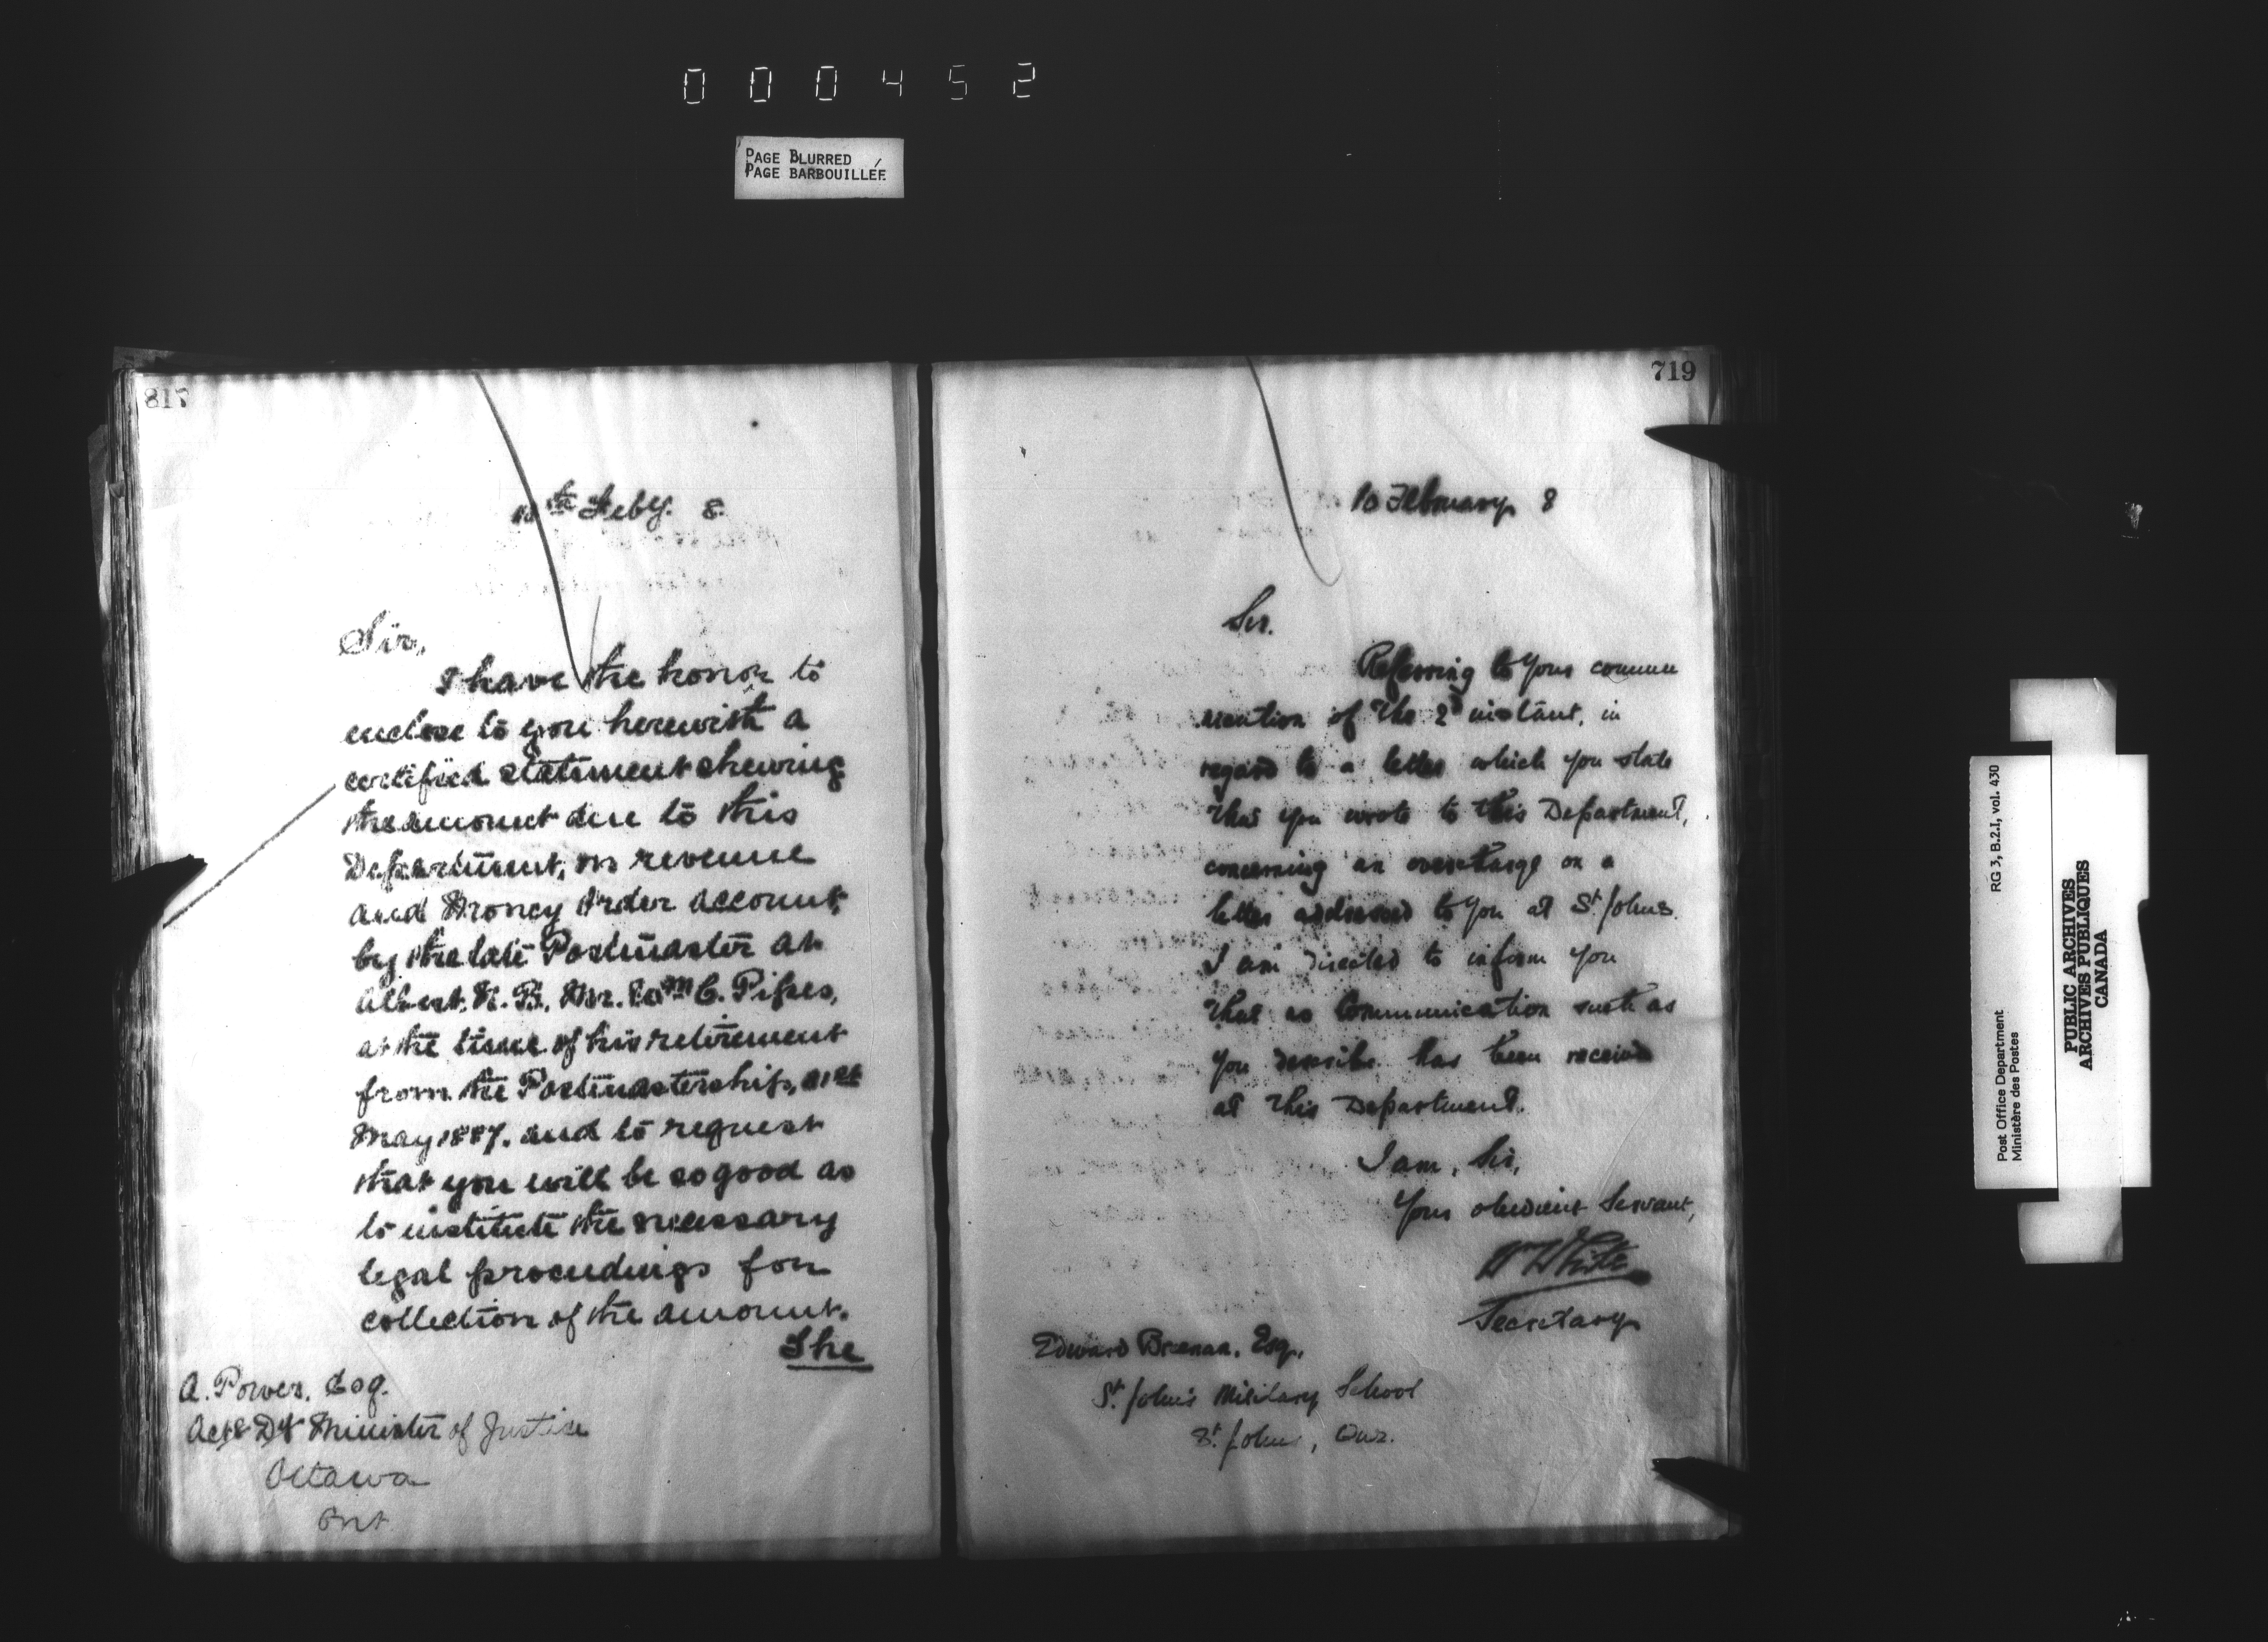 000452
PAGE BLURRED
PAGE BARBOUILLÉE
817
10th Feby. 8
Sir,
I have the honor to
enclose to you herewith a
certified statement shewing
the amount due to this
Department, on revenue
and Money Order account,
by the late Postmaster at
Albert, N.B. Mr. Wm C. Pipes,
at the time of his retirement
from the Postmastership, 21st
May 1887. and to request
that you will be so good as
to institute the necessary
legal proceedings for
collection of the amount.
The
A. Power, Esq.
Actg Dy Minister of Justice
Ottawa
Ont
719
10 February 8
Sir.
Referring to your commu
nication of the 2d instant, in
regard to a letter which you state
that you wrote to this Department,
concerning an overcharge on a
letter addressed to you at St. Johns
I am directed to inform you
that no communication such as
you describe has been received
at this Department.
I am, Sir,
Your obedient Servant,
W White
Secretary
Edward Brennan, Esq.,
St. John's Military School
St. Johns, Que.
Post Office Department
Ministère des Postes
RG 3, B.2.I, vol. 430
PUBLIC ARCHIVES
ARCHIVES PUBLIQUES
CANADA